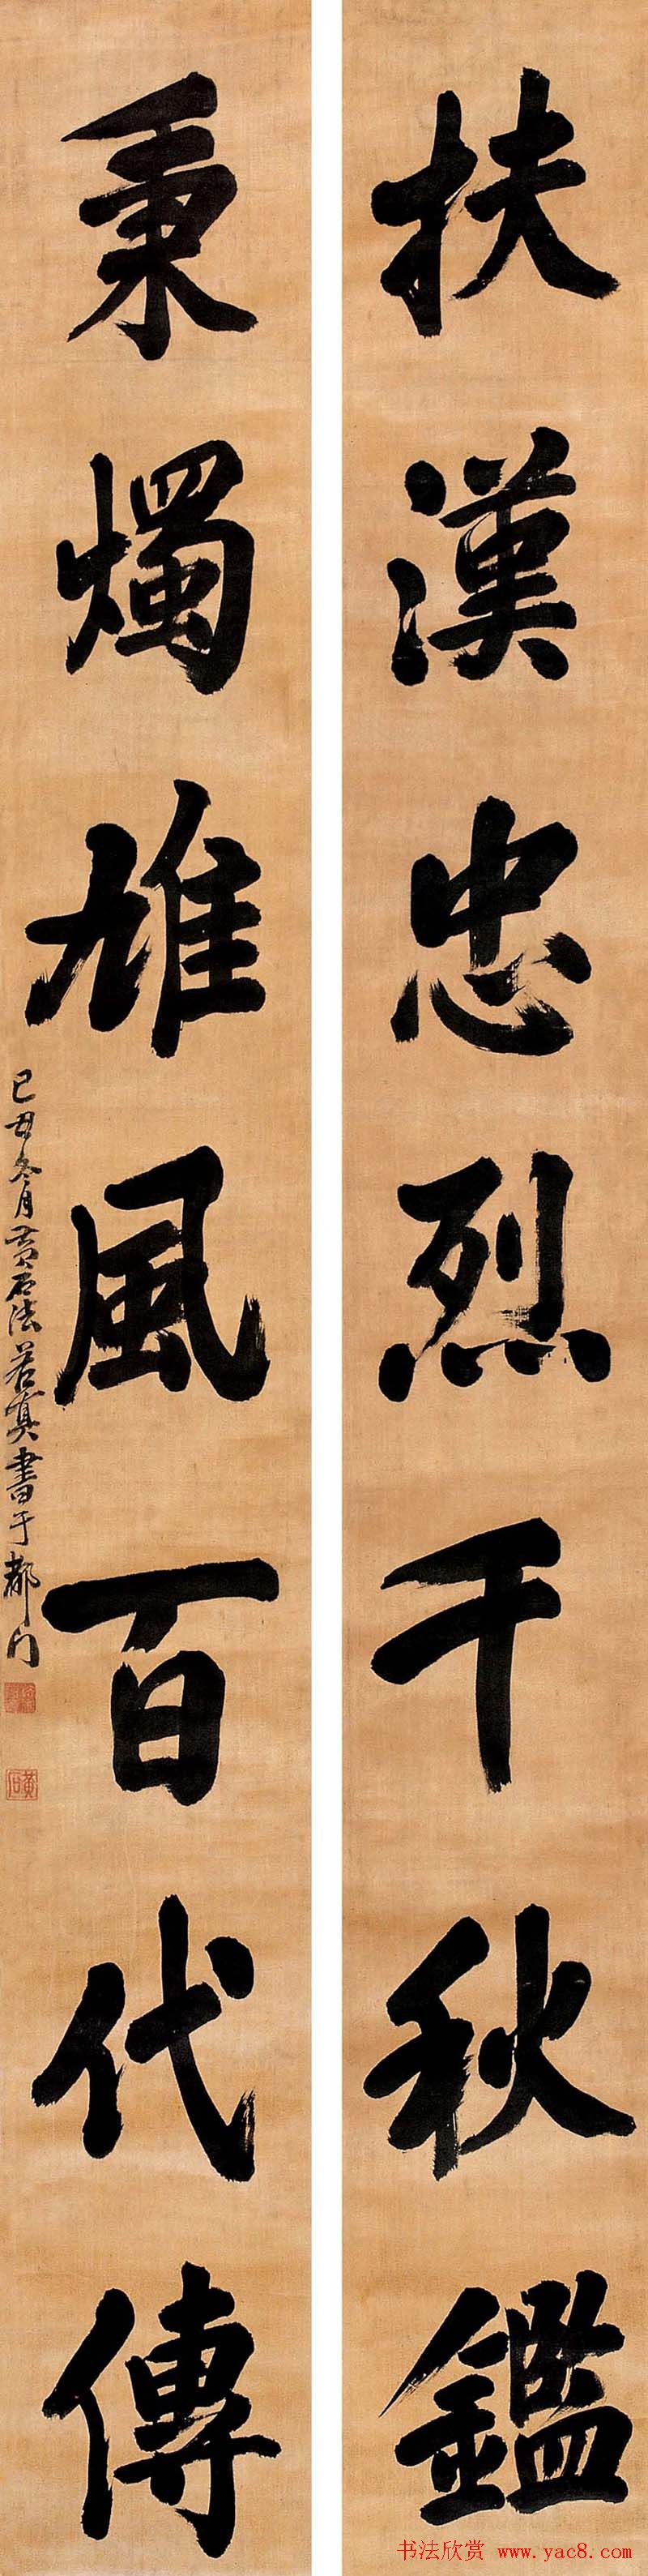 扶漢忠烈千秋鑑
秉燭雄風百代傳
己丑冬月黄石法若真書于都門
黄石
书法欣赏 www.yac8.com